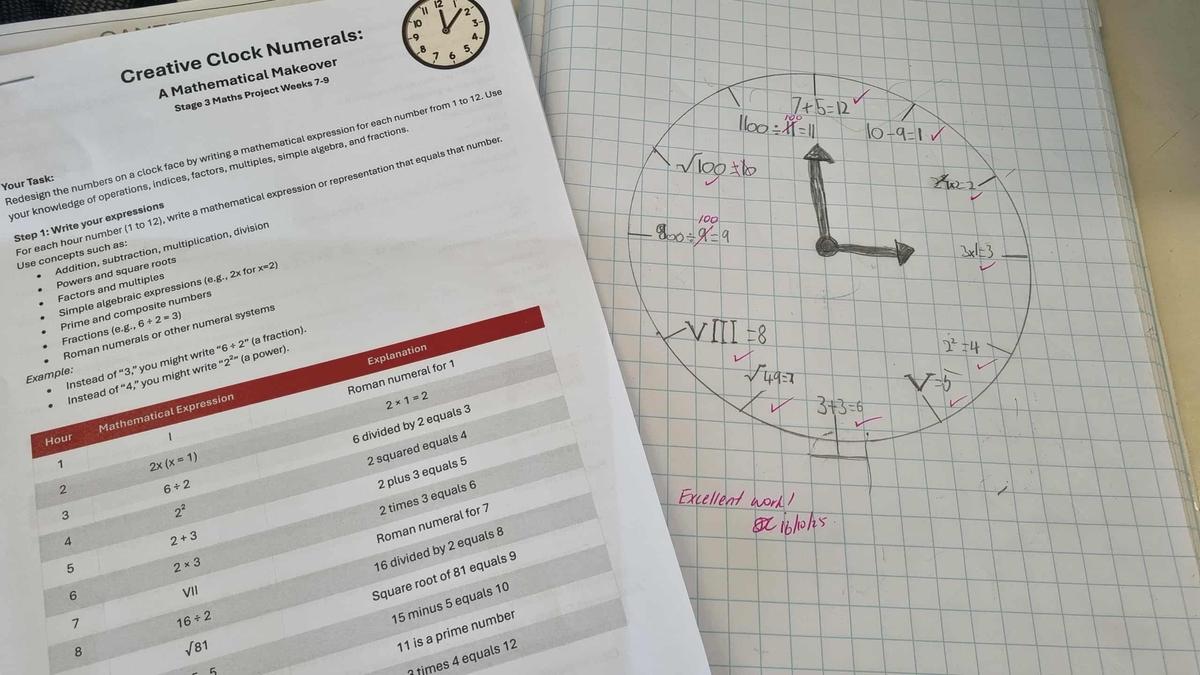 Creative Clock Numerals:
A Mathematical Makeover
Stage 3 Maths Project Weeks 7-9
12
1
2
3
4
5
6
7
8
9
10
11
Your Task:
Redesign the numbers on a clock face by writing a mathematical expression for each number from 1 to 12. Use
your knowledge of operations, indices, factors, multiples, simple algebra, and fractions.
Step 1: Write your expressions
For each hour number (1 to 12), write a mathematical expression or representation that equals that number.
Use concepts such as:
• Addition, subtraction, multiplication, division
• Powers and square roots
• Factors and multiples
• Simple algebraic expressions (e.g., 2x for x=2)
• Prime and composite numbers
• Fractions (e.g., 6 ÷ 2 = 3)
• Roman numerals or other numeral systems
Example:
• Instead of “3,” you might write “6 ÷ 2” (a fraction).
• Instead of “4,” you might write “2²” (a power).
Hour Mathematical Expression Explanation
1 I Roman numeral for 1
2 2x (x = 1) 2 × 1 = 2
3 6 ÷ 2 6 divided by 2 equals 3
4 2² 2 squared equals 4
5 2 + 3 2 plus 3 equals 5
6 2 × 3 2 times 3 equals 6
7 VII Roman numeral for 7
8 16 ÷ 2 16 divided by 2 equals 8
√81 Square root of 81 equals 9
5 15 minus 5 equals 10
11 is a prime number
3 times 4 equals 12
7+5=12
10-9=1
3x1=3
2²=4
V=5
3+3=6
√49=7
VIII=8
900÷9=9
100
√100=10
1100÷11=11
100
Excellent work!
16/10/25